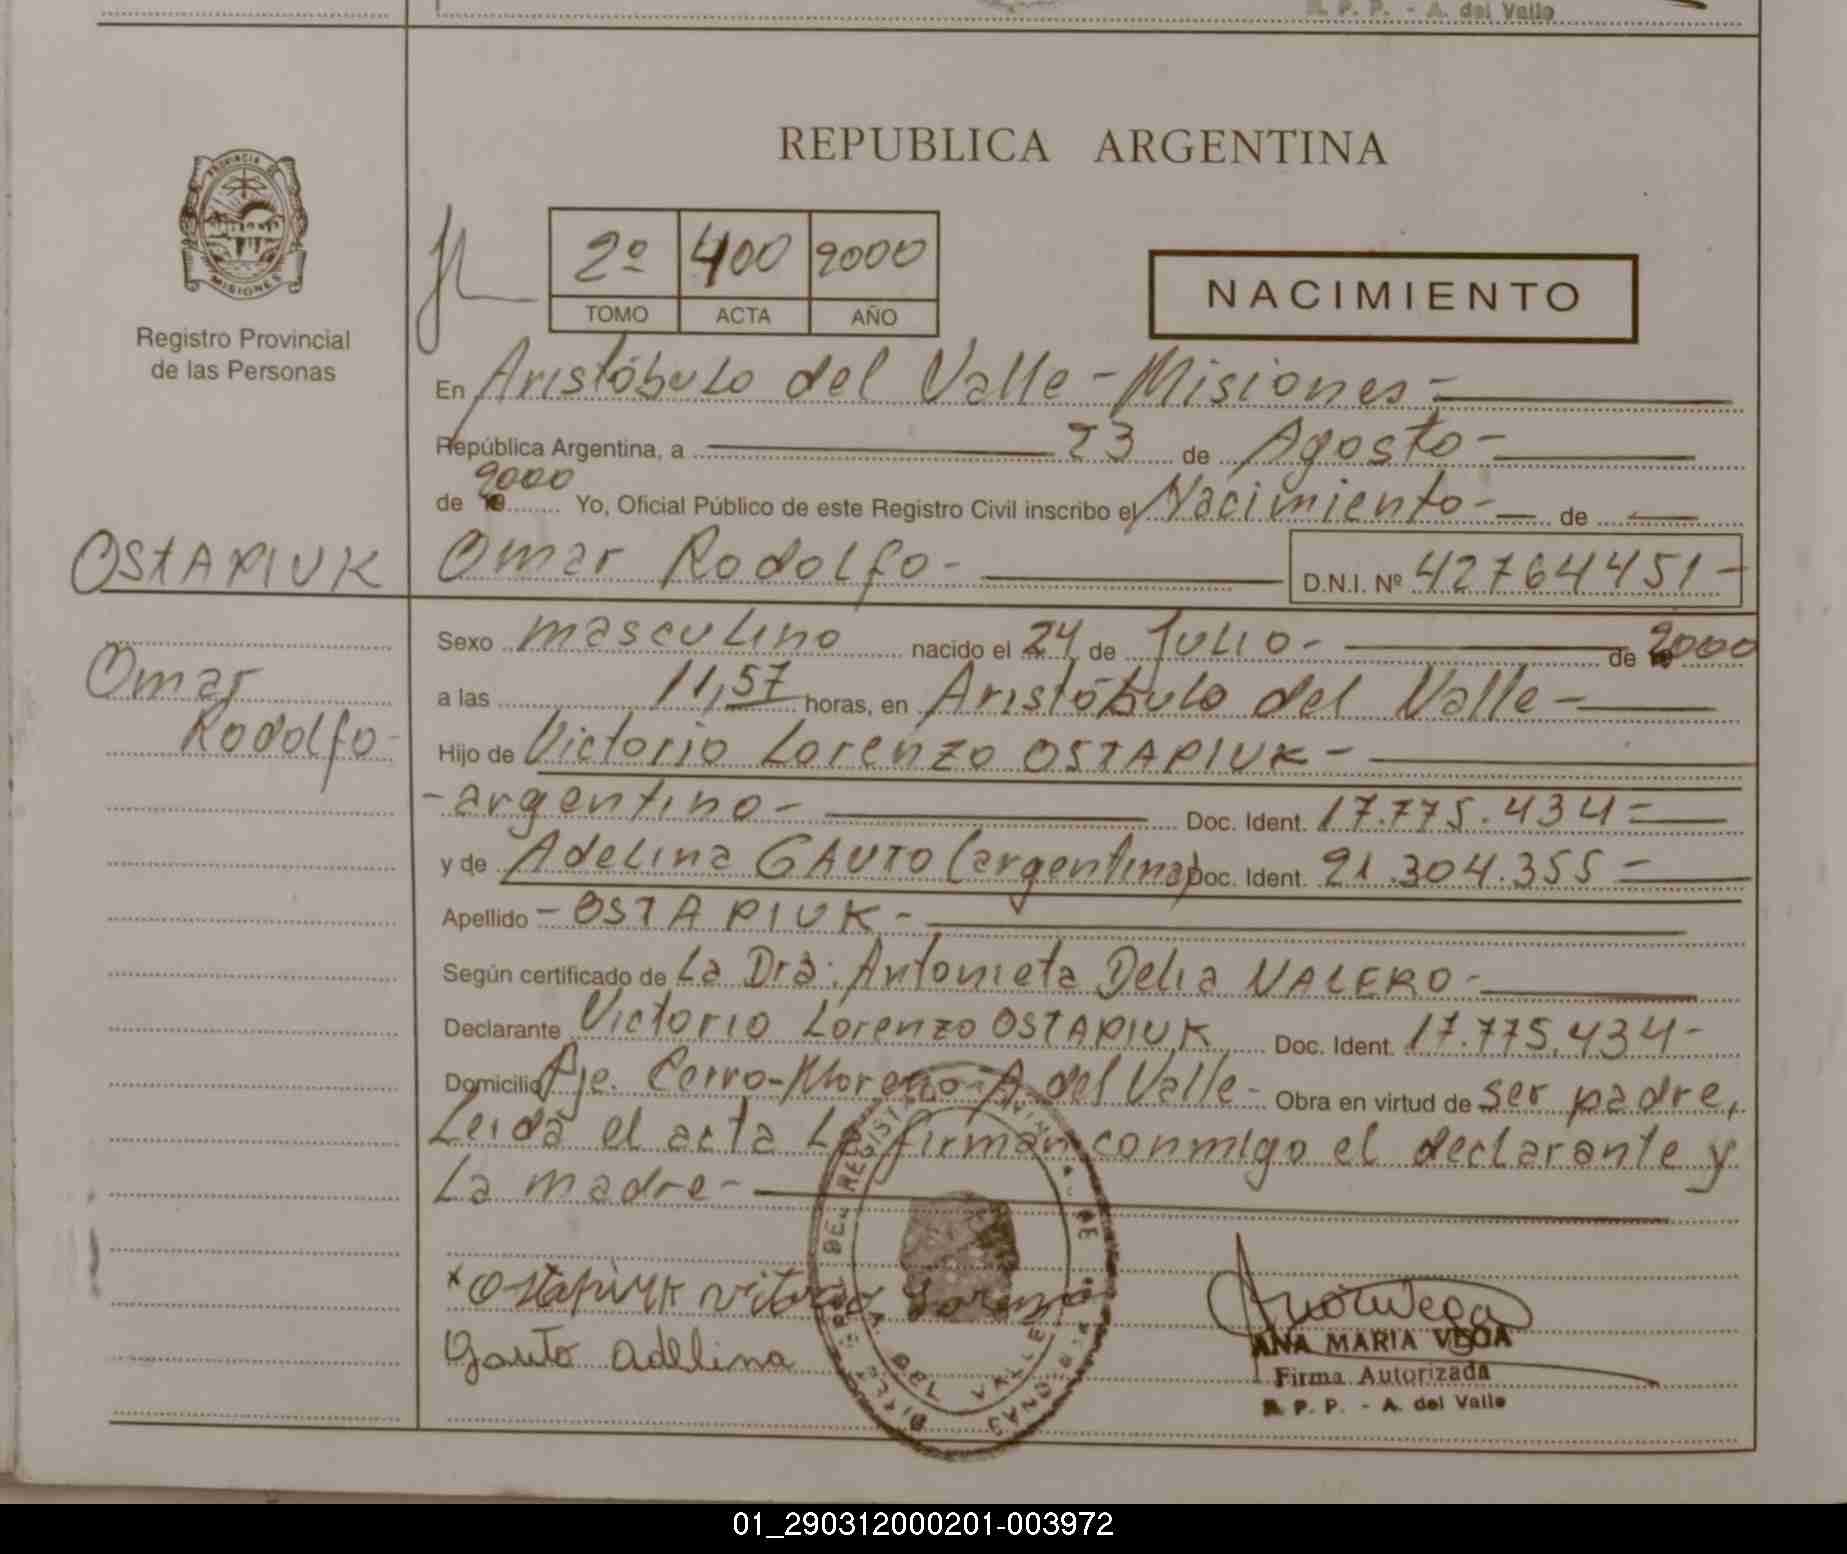 R. P. P. - A. del Valle
REPUBLICA ARGENTINA
PROVINCIA DE
MISIONES
Registro Provincial
de las Personas
2º 400 2000
TOMO ACTA AÑO
NACIMIENTO
En Aristóbulo del Valle - Misiones -
República Argentina, a 23 de Agosto -
de 2000 Yo, Oficial Público de este Registro Civil inscribo el Nacimiento - de
OSTAPIUK
Omar Rodolfo -
D.N.I. Nº 42764451 -
Omar
Rodolfo -
Sexo masculino nacido el 24 de Julio - de 2000
a las 11,57 horas, en Aristóbulo del Valle -
Hijo de Victorio Lorenzo OSTAPIUK -
- argentino - Doc. Ident. 17.775.434 =
y de Adelina GAUTO (argentina) Doc. Ident. 21.304.355 -
Apellido - OSTAPIUK -
Según certificado de La Dra: Antonieta Delia VALERO -
Declarante Victorio Lorenzo OSTAPIUK Doc. Ident. 17.775.434 -
Domicilio Pje. Cerro-Moreno-A. del Valle - Obra en virtud de ser padre,
Leida el acta La firman conmigo el declarante y
La madre -
x Ostapiuk vitorio Lorenzo
Gauto adelina
DEL VALLE
ANA MARIA VEGA
Firma Autorizada
R. P. P. - A. del Valle
01_290312000201-003972